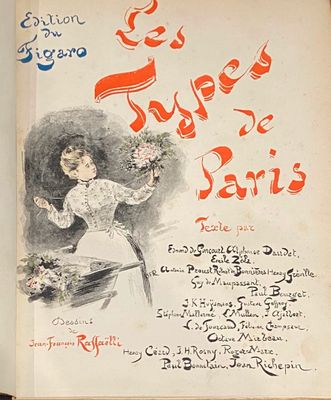 Edition
du
Figaro
Les
Types
de
Paris
Texte par
Edmond de Goncourt Alphonse Daudet,
Emile Zola,
Antonin Proust Robert de Bonnières Henry Gréville
Guy de Maupassant,
Paul Bourget,
J. K Huysmans, Gustave Geffroy,
Stéphane Mallarmé, L Mullem, J Ajalbert,
L. de Fourcaud, Félicien Champsaur,
Octave Mirbeau,
Henry Céard, J. H. Rosny, Roger-Marx,
Paul Bonnetain, Jean Richepin.
Dessins
de
Jean-François Raffaëlli